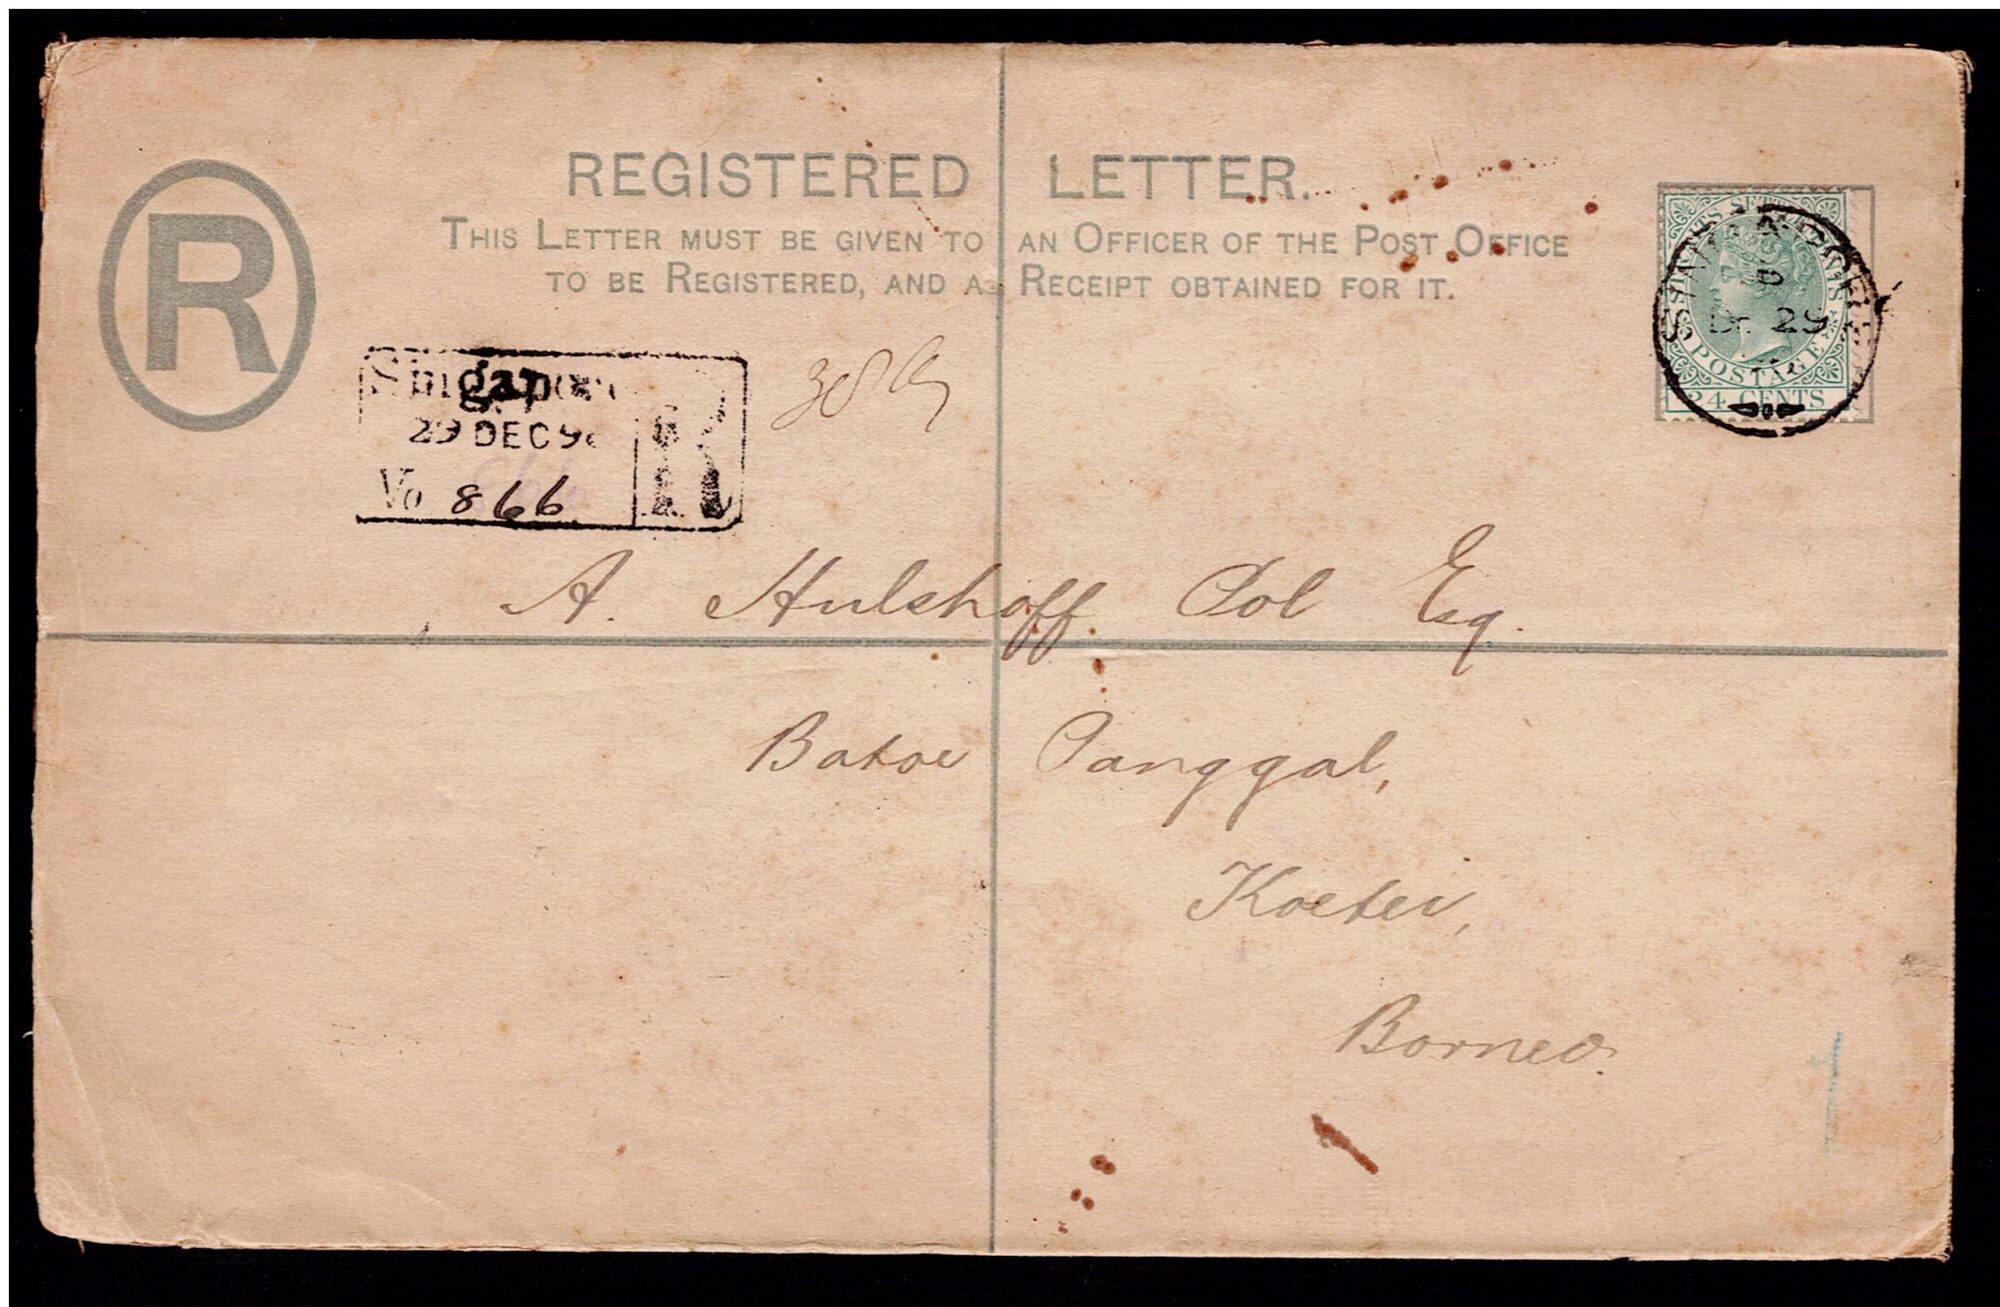 REGISTERED LETTER.
THIS LETTER MUST BE GIVEN TO AN OFFICER OF THE POST OFFICE
TO BE REGISTERED, AND A RECEIPT OBTAINED FOR IT.
R
STRAITS SETTLEMENTS
POSTAGE
24 CENTS
SINGAPORE
D
DE 29
Singapore
29 DEC 9
No 866
R
A. Hulshoff Pol Esq.
Batoe Panggal,
Koetei,
Borneo.